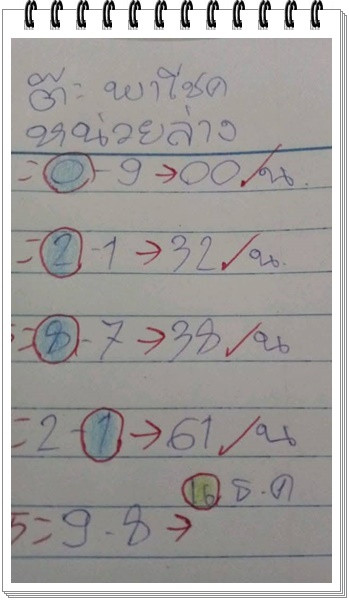 ต๊ะ พาโชค
หน่วยล่าง
= 0 - 9 → 00 ✓ น.
= 2 - 1 → 32 ✓ น.
= 8 - 7 → 38 ✓ น
= 2 - 1 → 61 ✓ น
16 ธ.ค
5 = 9 - 8 →